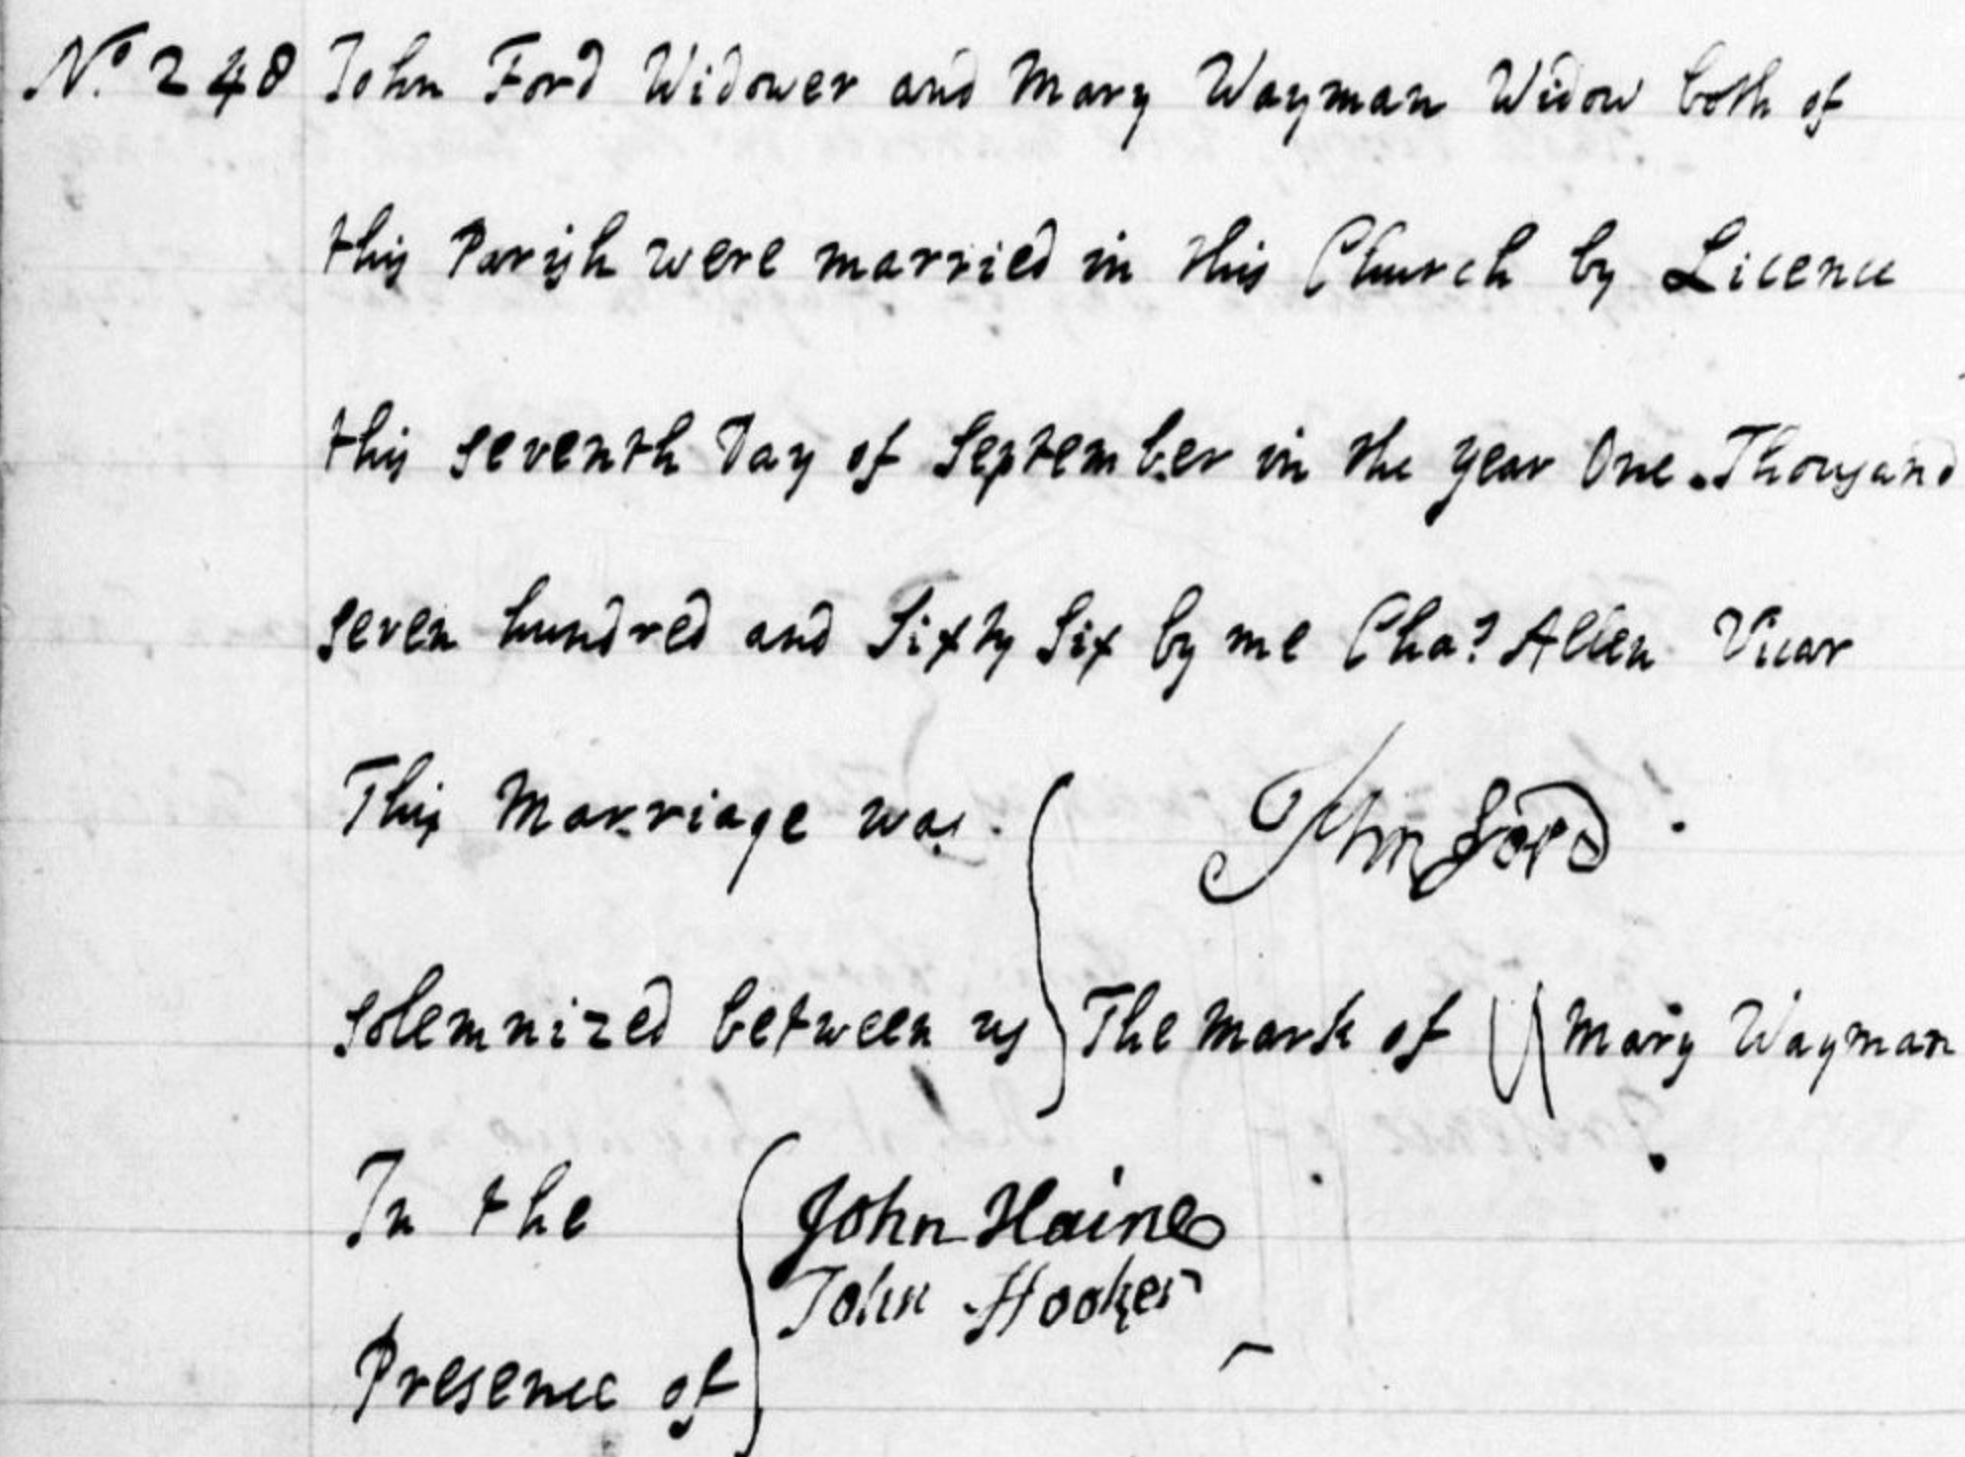 No. 248 John Ford Widower and Mary Wayman Widow both of
this Parish were married in this Church by Licence
this seventh Day of September in the year One Thousand
seven hundred and Sixty Six by me Chas. Allen Vicar
This Marriage was John Ford
solemnized between us The mark of Mary Wayman
In the John Haines
John Hooker
Presence of